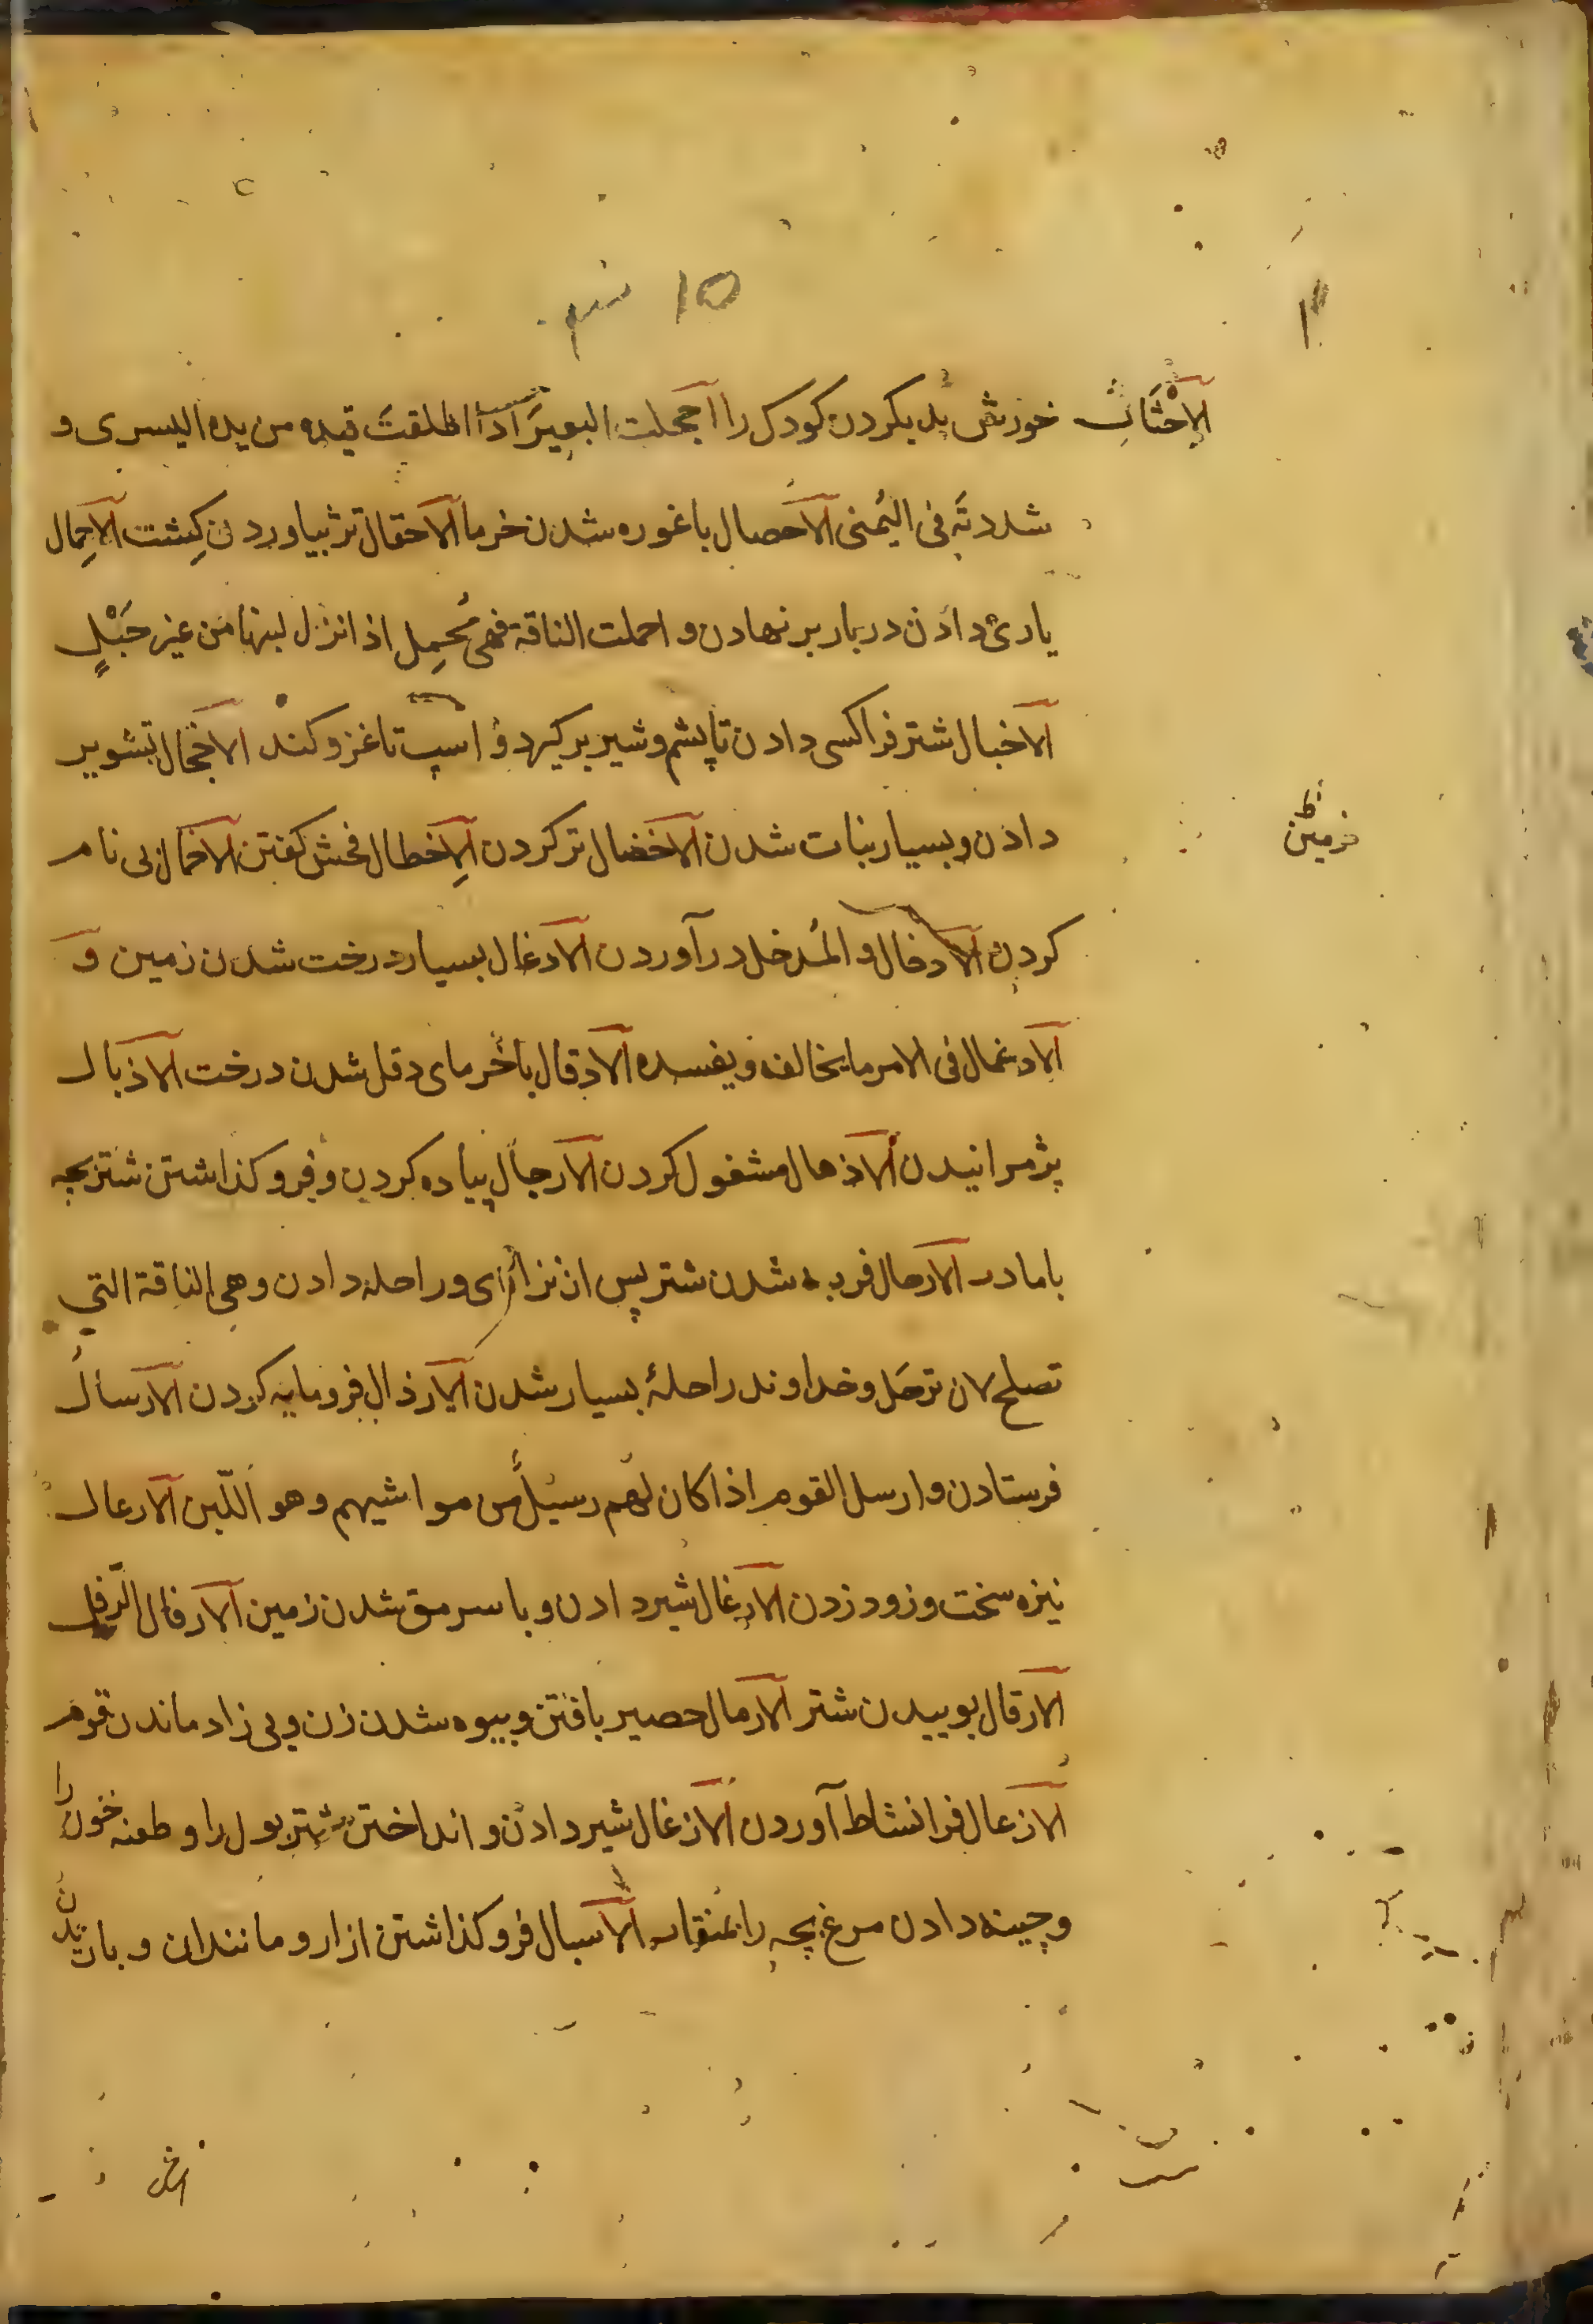 10
الاحثاث خورش بد بکردن کودک را احجلت البعیر اذا اطلقت قیده من یده الیسری و
شددته فی الیُمنی الاحصال باغوره شدن خرما الاحقال ترثیاوردن کِشت الاحمال
یاریٔ دادن در بار بر نهادن و احملت الناقة فهی مُحمِل اذا نزل لبنها من غیر حَبْلٍ
الاخبال شتر فرا کسی دادن تا پشم و شیر بر کیرد و اسب تا غزو کند الاخجال تشویر
دادن و بسیار نبات شدن الاخضال تر کردن الاِخطال فحش کفتن الاخمال بی نام
زمین
کردن الادخال و المُدخل در آوردن الادغال بسیار درخت شدن زمین و
الادغال فی الامر ما یخالفه و یفسده الادقال باخرمای دقل شدن درخت الاذبال
پژمرانیدن الاذهال مشغول کردن الارجال پیاده کردن و فرو کذاشتن شتر بچه
با مادر الارحال فربه شدن شتر پس از نزاری و راحله دادن و هی الناقة التی
تصلح لان ترحَل و خداوند راحلهٔ بسیار شدن الارذال فرومایه کردن الارسال
فرستادن و ارسل القوم اذا کان لهم رسیلٌ من مواشیهم و هو اللّبن الارعال
نیزه سخت و زود زدن الارغال شیر دادن و با سرمق شدن زمین الارفال الرّفل
الارقال بوییدن شتر الارمال حصیر بافتن و بیوه شدن زن و بی زاد ماندن قوم
الازعال فرا نشاط آوردن الازغال شیر دادن و انداختن شتر بول را و طعنه خون را
و چینه دادن مرغ بچه را بمنقار الاسبال فرو کذاشتن ازار و مانند ان و باریدن